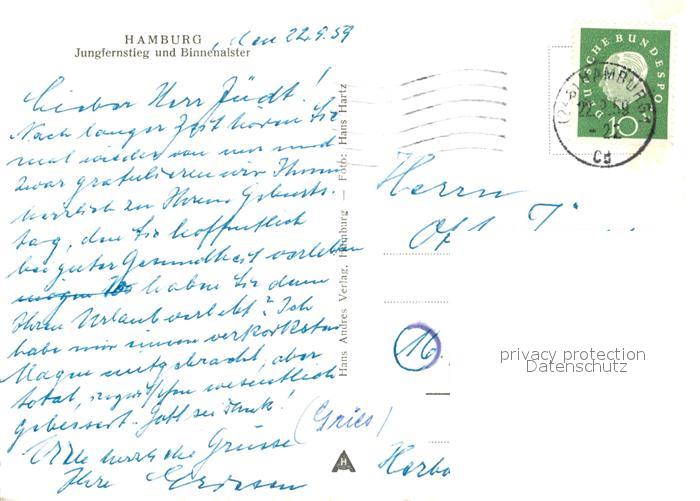 HAMBURG
Jungfernstieg und Binnenalster
, den 22.9.59
Lieber Herr Jüdt!
Nach langer Zeit hören Sie
mal wieder von mir und
zwar gratulieren wir Ihnen
herzlich zu Ihrem Geburts-
tag, den Sie hoffentlich
bei guter Gesundheit verleben
haben Sie denn
Ihren Urlaub verlebt? Ich
habe mir einen verkorksten
Magen mitgebracht, aber
total, inzwischen wesentlich
gebessert. Gott sei Dank!
Viele herzliche Grüsse
Ihre
(Gries)
Hans Andres Verlag, Hamburg — Foto: Hans Hartz
DEUTSCHE BUNDESPOST
10
HAMBURG
22.9.59
cd
Herrn
16
privacy protection
Datenschutz